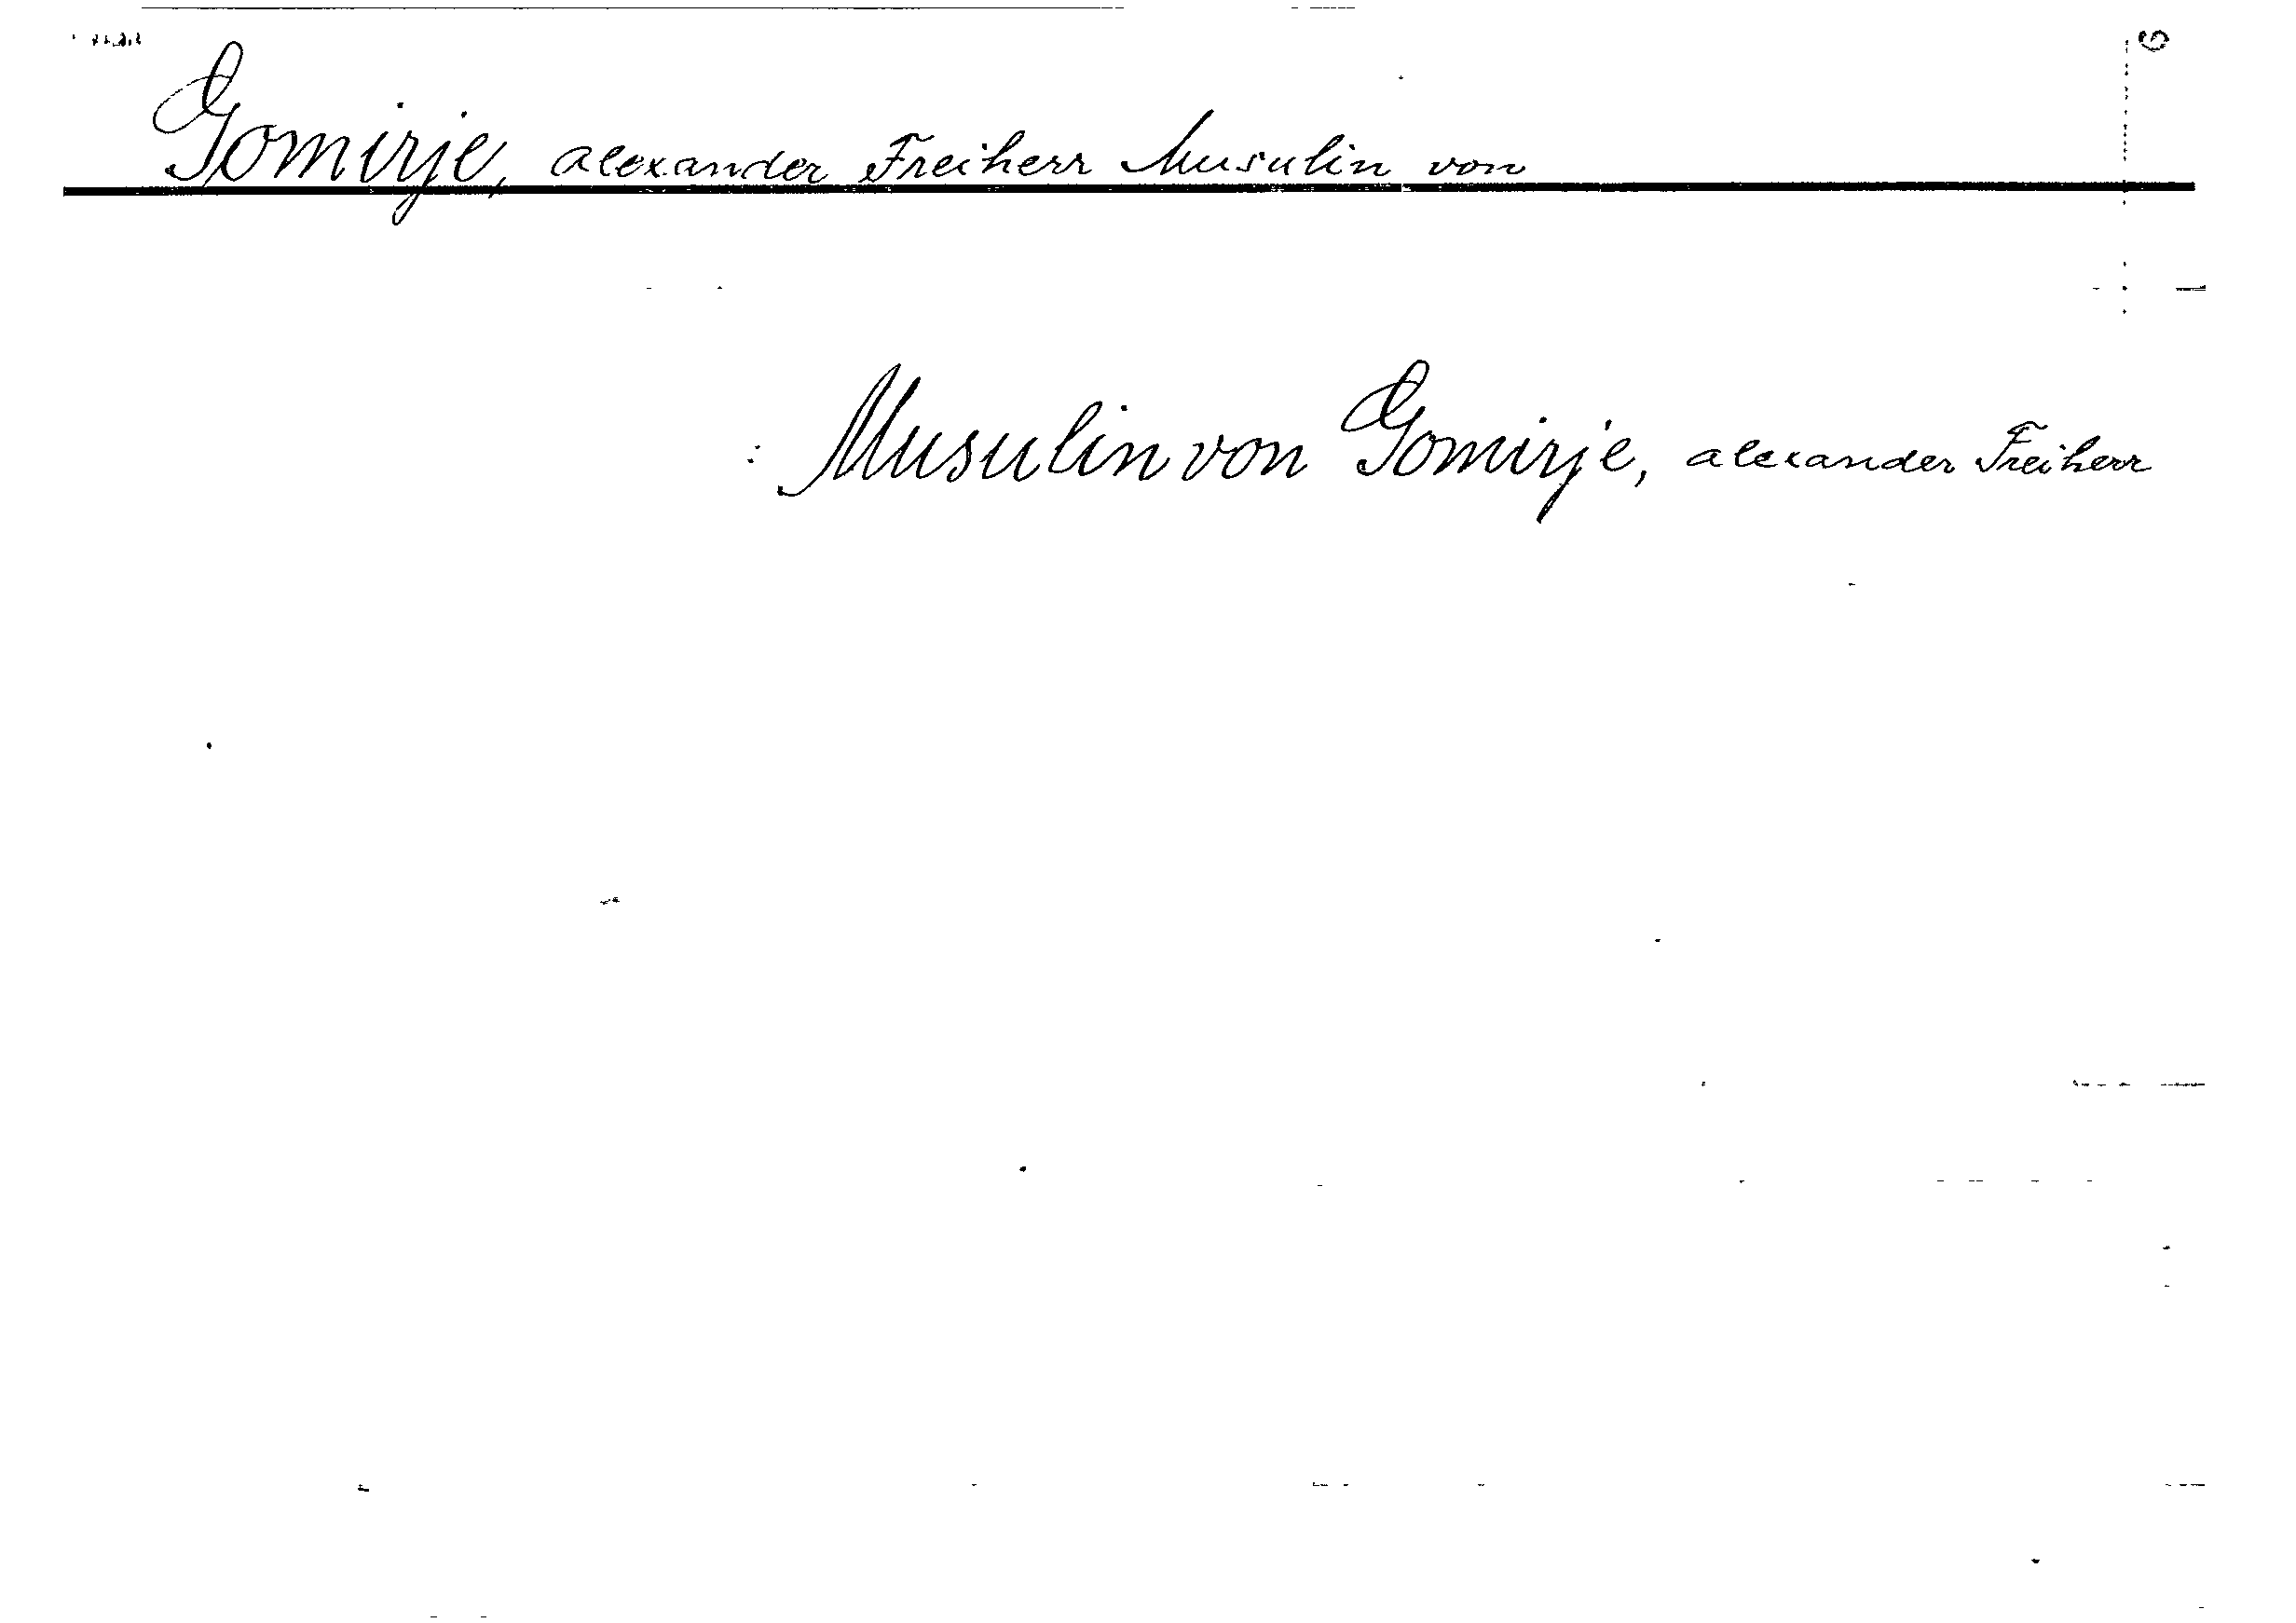 Gomirje, Alexander Freiherr Musulin von
: Musulin von Gomirje, Alexander Freiherr